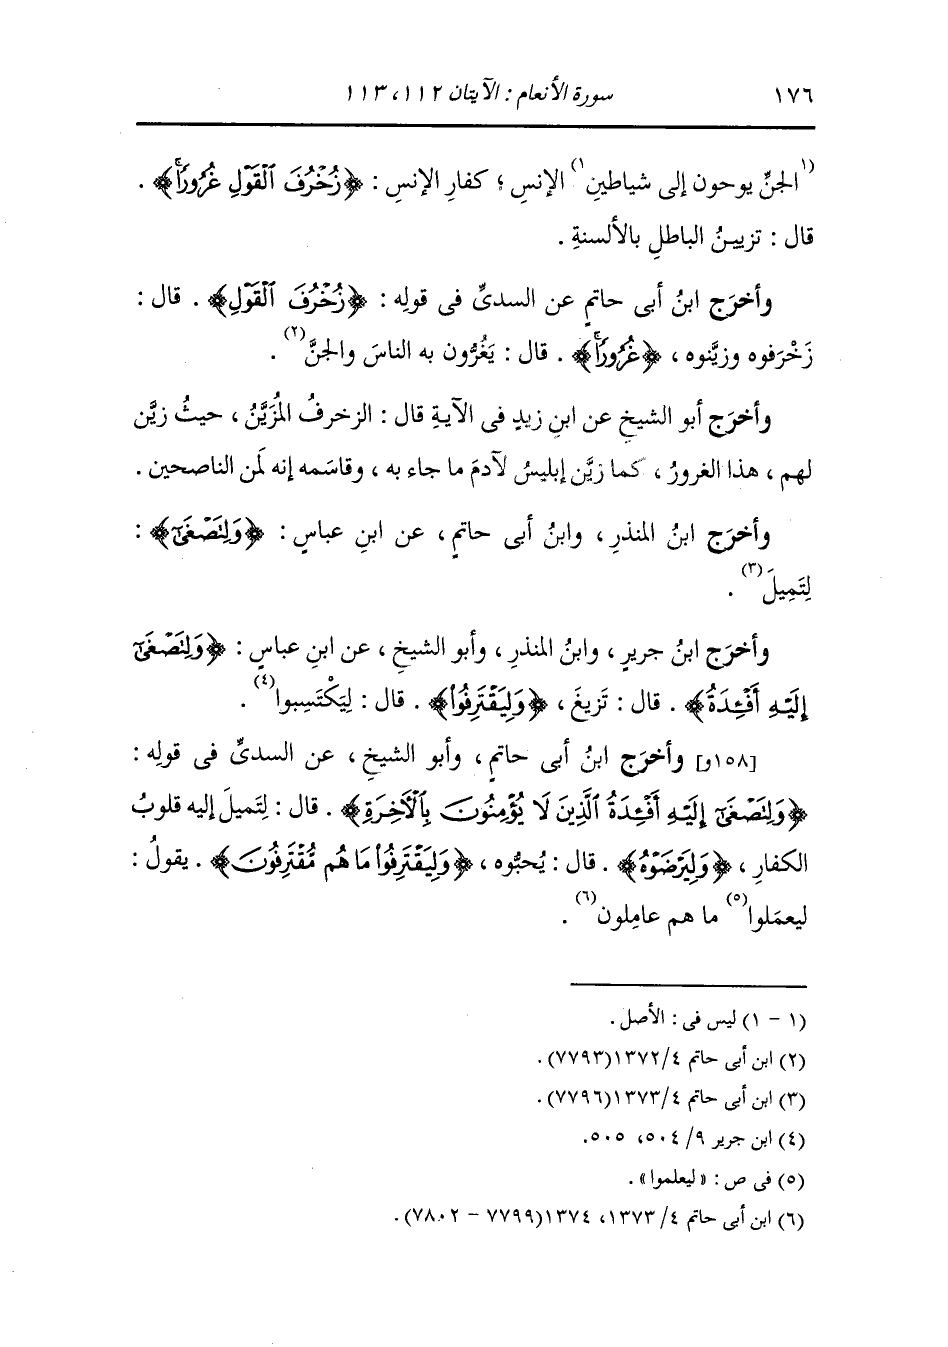 ١٧٦ سورة الأنعام : الآيتان ١١٢ ، ١١٣
(١)الجنِّ يوحون إلى شياطينِ(١) الإنسِ ؛ كفارِ الإنسِ : ﴿زُخْرُفَ ٱلْقَوْلِ غُرُورًاۚ﴾ .
قال : تزيينُ الباطلِ بالألسنةِ .
وأخرَج ابنُ أبى حاتمٍ عن السدىِّ فى قولِه : ﴿زُخْرُفَ ٱلْقَوْلِ﴾ . قال :
زَخْرَفوه وزيَّنوه ، ﴿غُرُورًاۚ﴾ . قال : يَغُرُّون به الناسَ والجنَّ(٢) .
وأخرَج أبو الشيخِ عن ابنِ زيدٍ فى الآيةِ قال : الزخرفُ المُزَيَّنُ ، حيثُ زيَّن
لهم ، هذا الغرورُ ، كما زيَّن إبليسُ لآدمَ ما جاء به ، وقاسَمه إنه لَمن الناصحين .
وأخرَج ابنُ المنذرِ ، وابنُ أبى حاتمٍ ، عن ابنِ عباسٍ : ﴿وَلِتَصْغَىٰٓ﴾ :
لِتَمِيلَ(٣) .
وأخرَج ابنُ جريرٍ ، وابنُ المنذرِ ، وأبو الشيخِ ، عن ابنِ عباسٍ : ﴿وَلِتَصْغَىٰٓ
إِلَيْهِ أَفْـِٔدَةُ﴾ . قال : تَزيغَ ، ﴿وَلِيَقْتَرِفُوا۟﴾ . قال : لِيَكْتَسِبوا(٤) .
[١٥٨و] وأخرَج ابنُ أبى حاتمٍ ، وأبو الشيخِ ، عن السدىِّ فى قولِه :
﴿وَلِتَصْغَىٰٓ إِلَيْهِ أَفْـِٔدَةُ ٱلَّذِينَ لَا يُؤْمِنُونَ بِٱلْـَٔاخِرَةِ﴾ . قال : لِتَميلَ إليه قلوبُ
الكفارِ ، ﴿وَلِيَرْضَوْهُ﴾ . قال : يُحبُّوه ، ﴿وَلِيَقْتَرِفُوا۟ مَا هُم مُّقْتَرِفُونَ﴾ . يقولُ :
ليعمَلوا(٥) ما هم عامِلون(٦) .
(١ - ١) ليس فى : الأصل .
(٢) ابن أبى حاتم ٤/ ١٣٧٢(٧٧٩٣) .
(٣) ابن أبى حاتم ٤/ ١٣٧٣(٧٧٩٦) .
(٤) ابن جرير ٩/ ٥٠٤، ٥٠٥.
(٥) فى ص : « ليعلموا » .
(٦) ابن أبى حاتم ٤/ ١٣٧٣، ١٣٧٤(٧٧٩٩ - ٧٨٠٢) .